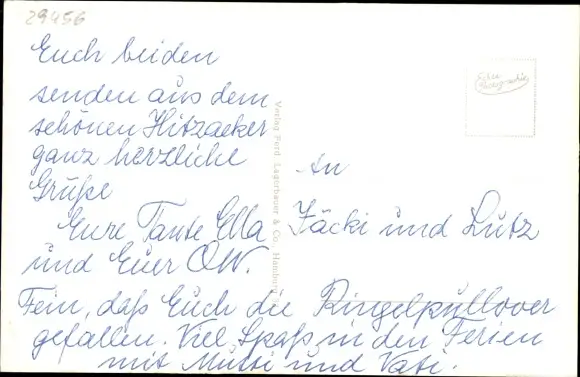 29456
Euch beiden
senden aus dem
schönen Hitzacker
ganz herzliche
Grüße
Eure Tante Ella
und Euer OW.
Fein, daß Euch die Ringelpullover
gefallen. Viel Spaß in den Ferien
mit Mutti und Vati.
Verlag Ferd. Lagerbauer & Co., Hamburg
Echte
Photographie
An
Jäcki und Lutz